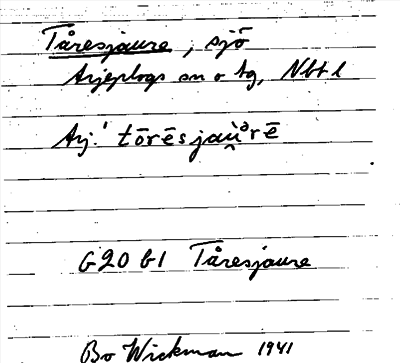 Tåresjaure, sjö
Arjeplogs sn o tg, Nbt l
Arj. ˈtōrēsjau̯ᵊrē
G20 b1 Tåresjaure
Bo Wickman 1941